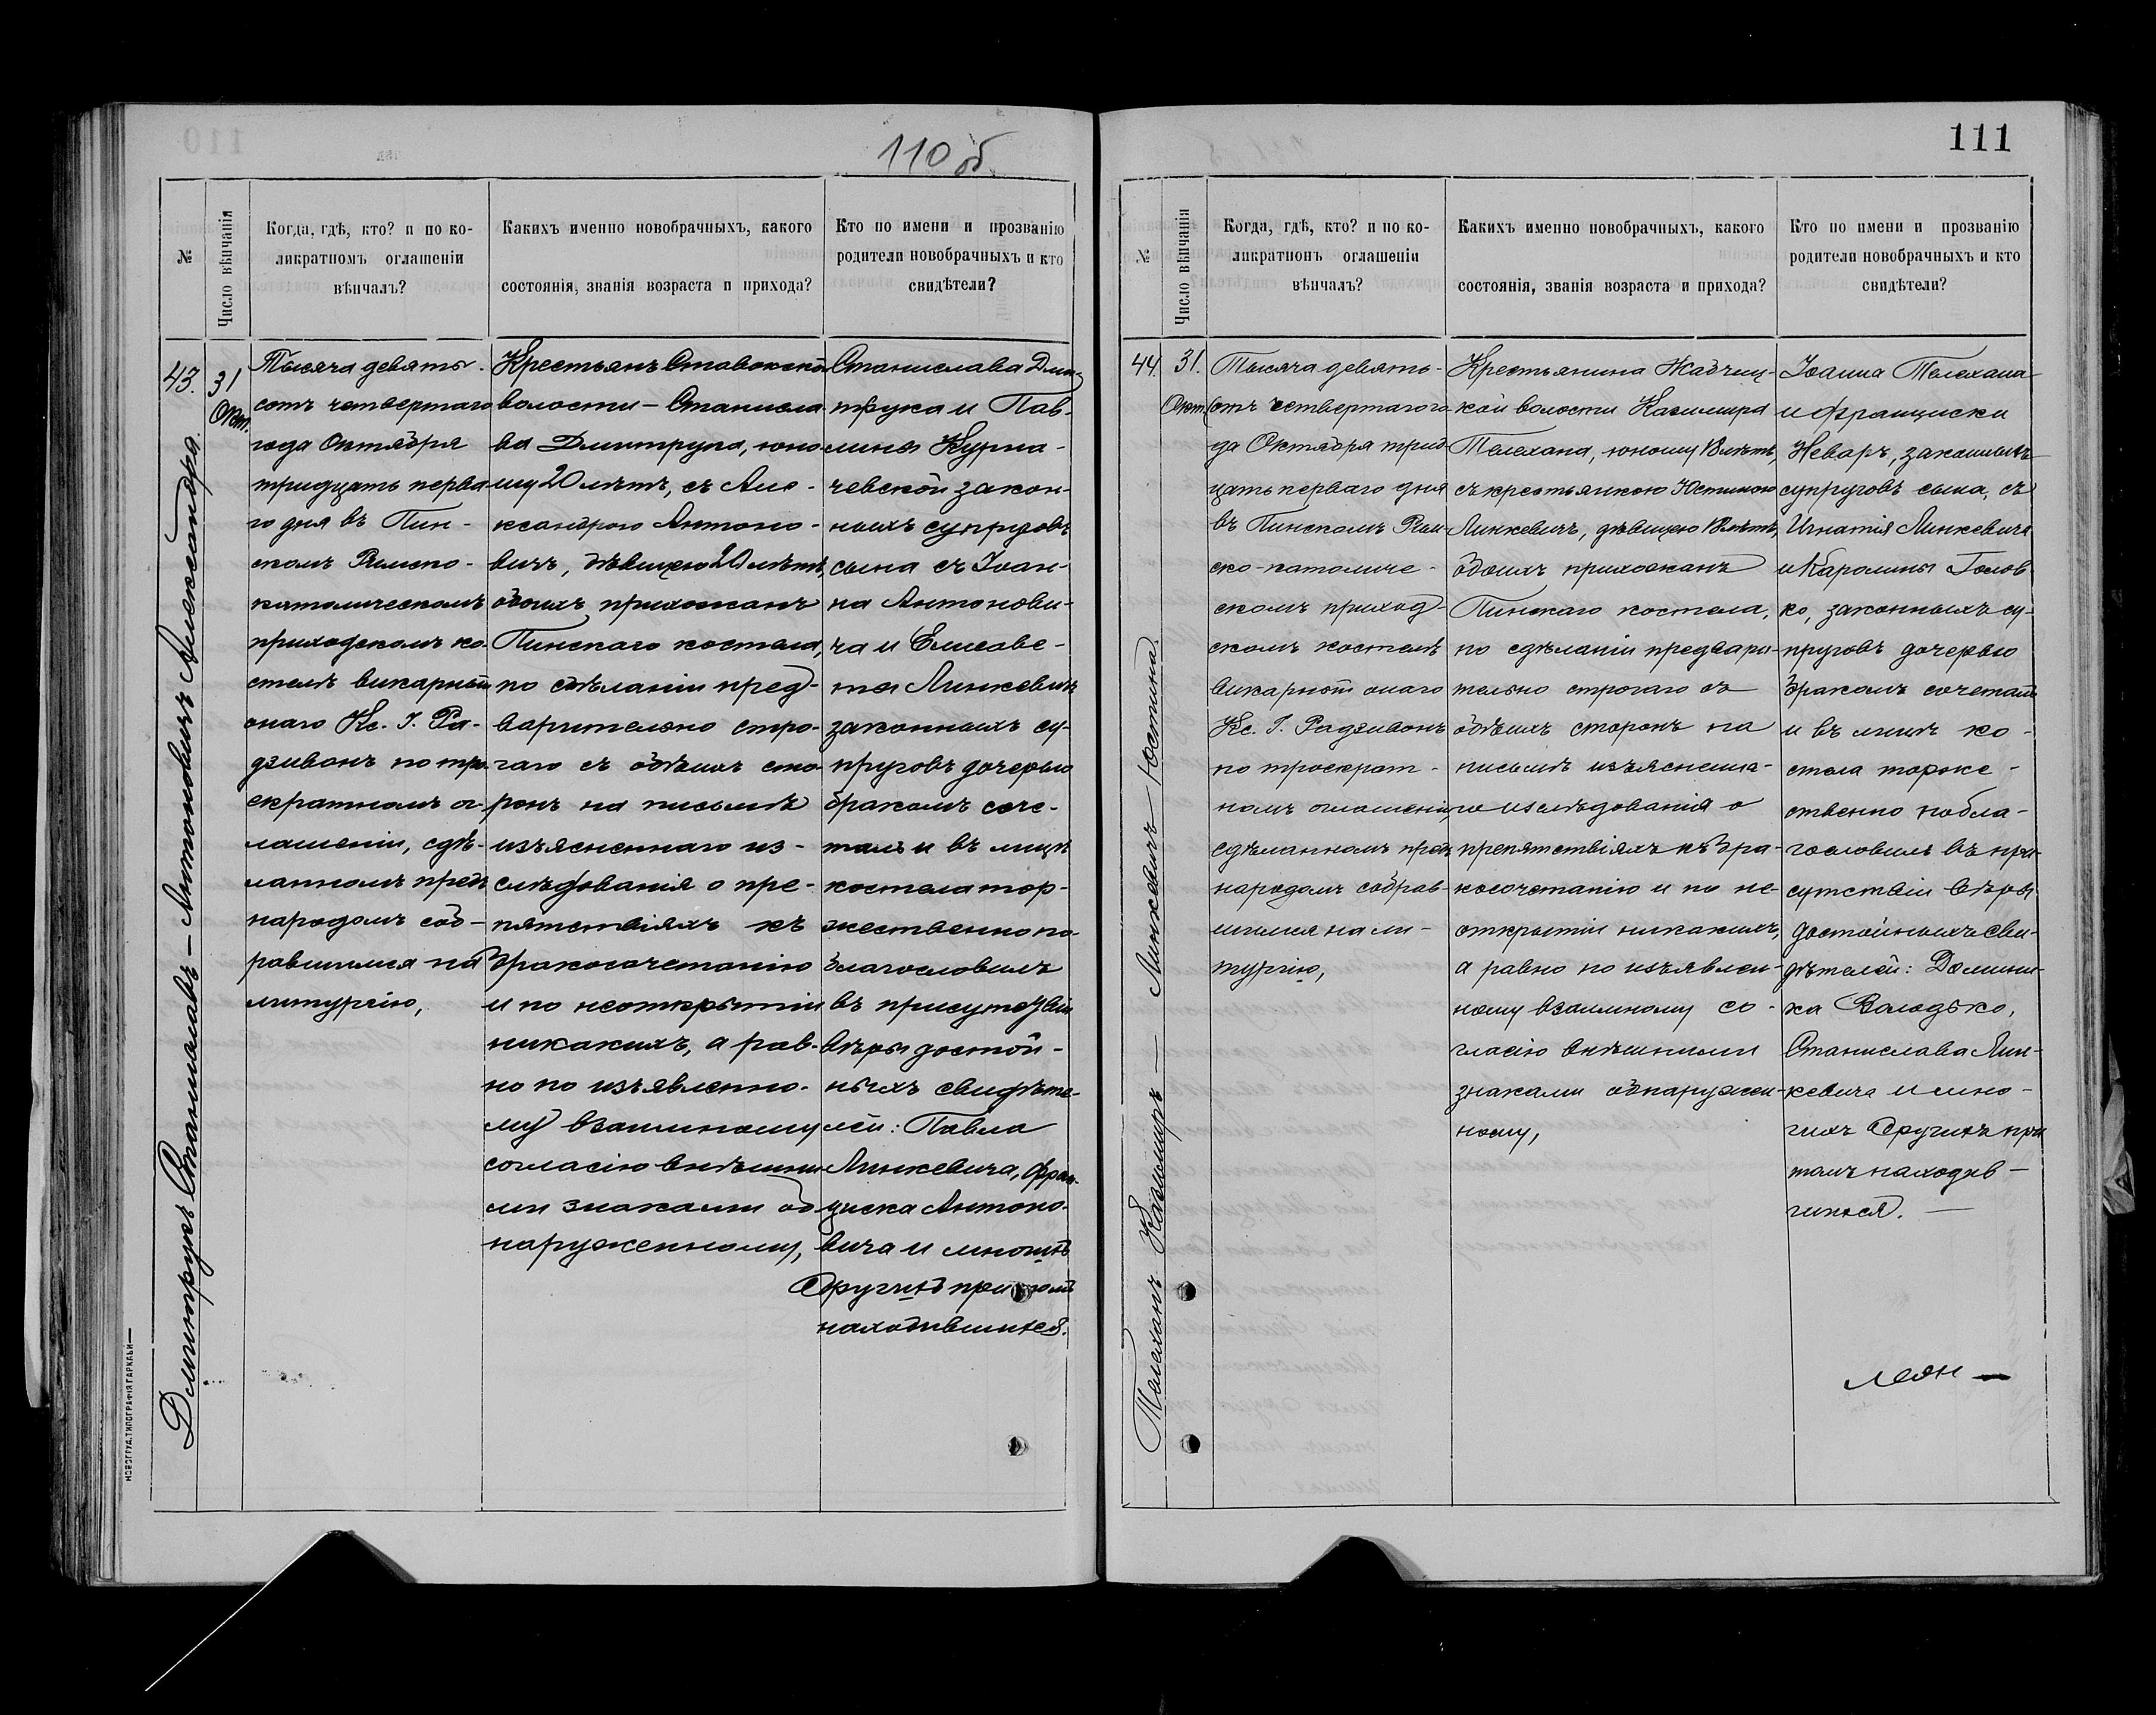 110 об.
№
Число вѣнчанія
Когда, гдѣ, кто? и по ко-
ликратномъ оглашеніи
вѣнчалъ?
Какихъ именно новобрачныхъ, какого
состоянія, званія возраста и прихода?
Кто по имени и прозванію
родители новобрачныхъ и кто
свидѣтели?
43.
31
Окт.
Дмитрукъ Станиславъ — Антоновичъ Александра.
Тысяча девять-
сотъ четвертаго
года Октября
тридцать перва-
го дня въ Пин-
скомъ Римско-
католическомъ
приходскомъ ко-
стелѣ викарный
онаго Кс. І. Ра-
дзивонъ по тро-
екратномъ ог-
лашеніи, сдѣ-
ланномъ предъ
народомъ соб-
равшимся на
литургію,
Крестьянъ Ставокской
волости — Станисла-
ва Дмитрука, юно-
шу 20 лѣтъ, съ Але-
ксандрою Антоно-
вичъ, дѣвицею 20 лѣтъ,
обоихъ прихожанъ
Пинскаго костела,
по сдѣланіи пред-
варительно стро-
гаго съ обѣихъ сто-
ронъ на письмѣ
изъясненнаго из-
слѣдованія о пре-
пятствіяхъ къ
бракосочетанію
и по неоткрытіи
никакихъ, а рав-
но по изъявленно-
му взаимному
согласію внѣшни-
ми знаками об-
наруженному,
Станислава Дми-
трука и Пав-
лины Курна-
чевской закон-
ныхъ супруговъ
сына съ Іоан-
на Антонови-
ча и Елисаве-
ты Линкевичъ
законныхъ су-
пруговъ дочерью
бракомъ соче-
талъ и въ лицѣ
костела тор-
жественно по-
благословилъ
въ присутствіи
вѣры достой-
ныхъ свидѣте-
лей: Павла
Линкевича, Фран-
циска Антоно-
вича и многихъ
другихъ при томъ
находившихся.
НОВОГРУД. ТИПОГРАФІЯ ГАРКАВИ
111
№
Число вѣнчанія
Когда, гдѣ, кто? и по ко-
ликратномъ оглашеніи
вѣнчалъ?
Какихъ именно новобрачныхъ, какого
состоянія, званія возраста и прихода?
Кто по имени и прозванію
родители новобрачныхъ и кто
свидѣтели?
44.
31.
Окт.
Телеханъ Казимиръ — Линкевичъ Юстина.
Тысяча девять-
сотъ четвертаго го-
да Октября трид-
цать перваго дня
въ Пинскомъ Рим-
ско-католиче-
скомъ приход-
скомъ костелѣ
викарной онаго
Кс. І. Радзивонъ
по троекрат-
номъ оглашеніи,
сдѣланномъ предъ
народомъ собрав-
шимся на ли-
тургію,
Крестьянина Жабчиц-
кой волости Казимира
Телехана, юношу 18 лѣтъ,
съ крестьянкою Юстиною
Линкевичъ, дѣвицею 18 лѣтъ,
обоихъ прихожанъ
Пинскаго костела,
по сдѣланіи предвари-
тельно строгаго съ
обѣихъ сторонъ на
письмѣ изъясненна-
го изслѣдованія о
препятствіяхъ къ бра-
косочетанію и по не-
открытіи никакихъ,
а равно по изъявлен-
ному взаимному со-
гласію внѣшними
знаками обнаружен-
ному,
Іоанна Телехана
и Франциски
Неваръ, законныхъ
супруговъ сына, съ
Игнатія Линкевича
и Каролины Голов-
ко, законныхъ су-
пруговъ дочерью
бракомъ сочеталъ
и въ лицѣ ко-
стела торже-
ственно побла-
гословилъ въ при-
сутствіи вѣры
достойныхъ сви-
дѣтелей: Домини-
ка Володько,
Станислава Лин-
кевича и мно-
гихъ другихъ при
томъ находив-
шихся. —